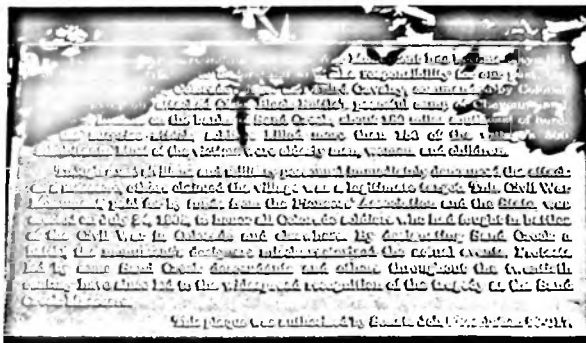 Monument has become a symbol
take responsibility for our past. On
Colorado's First and Third Cavalry, commanded by Colonel
attacked Chief Black Kettle's peaceful camp of Cheyenne and
on the banks of Sand Creek, about 180 miles southeast of here.
surprise attack, soldiers killed more than of the village's 500
inhabitants. Most of the victims were elderly men, women, and children.
Though some civilians and military personnel immediately denounced the attack
as a massacre, others claimed the village was a legitimate target. This Civil War
Monument, paid for by funds from the Pioneers' Association and the State, was
erected on July 24, 1909, to honor all Colorado soldiers who had fought in battles
of the Civil War in Colorado and elsewhere. By designating Sand Creek a
battle, the monument's designers mischaracterized the actual events. Protests
led by some Sand Creek descendants and others throughout the twentieth
century have since led to the widespread recognition of the tragedy as the Sand
Creek Massacre.
This plaque was authorized by Senate Joint Resolution